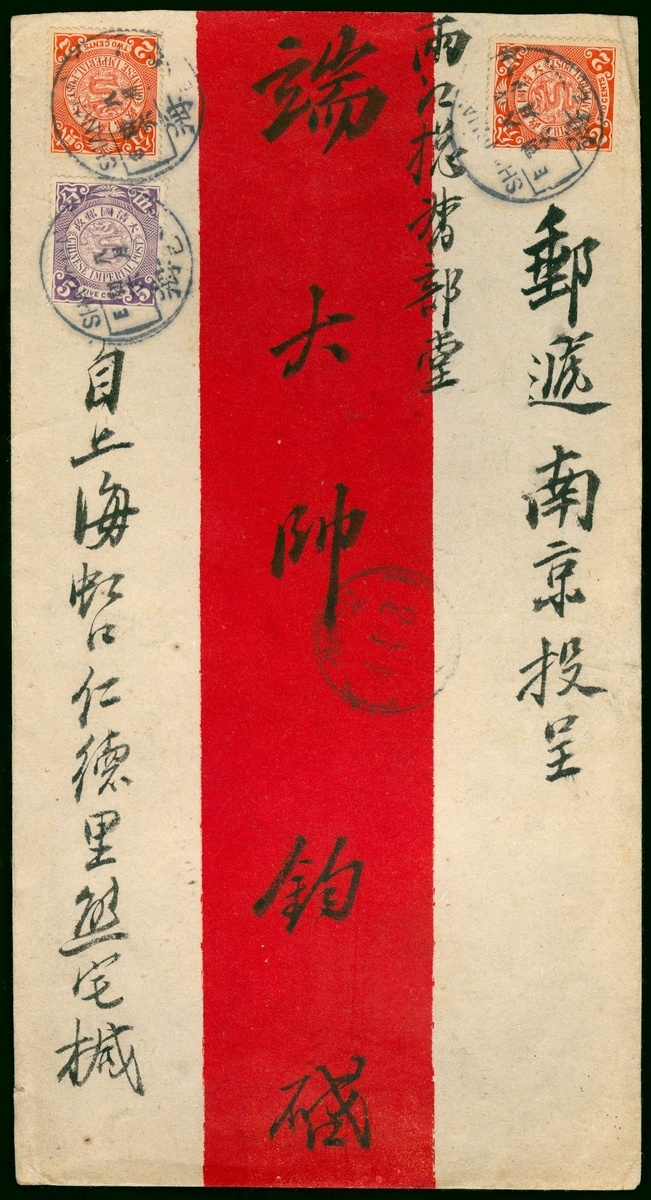 郵遞南京投呈
兩江揔督部堂
端大帥鈞啟
自上海虹口仁德里熊宅槭
大清國郵政
CHINESE IMPERIAL POST
TWO CENTS
2
2
伍分
大清國郵政
CHINESE IMPERIAL POST
FIVE CENTS
5
5
大清國郵政
CHINESE IMPERIAL POST
TWO CENTS
2
2